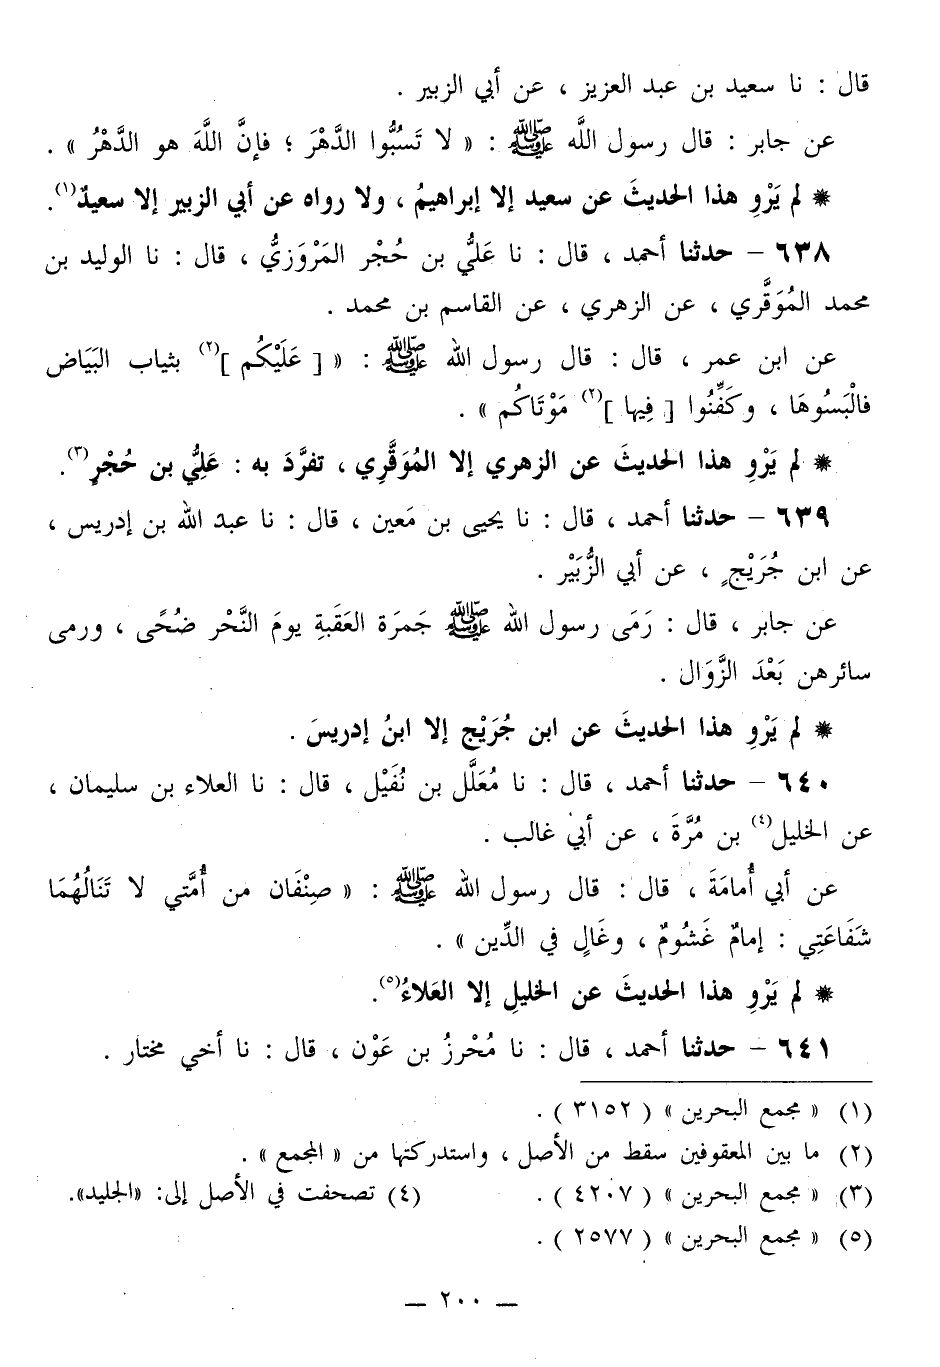 قال : نا سعيد بن عبد العزيز ، عن أبي الزبير .
عن جابر : قال رسول اللَّه ﷺ : « لا تَسُبُّوا الدَّهْرَ ؛ فإنَّ اللَّهَ هو الدَّهْرُ » .
* لم يَرْوِ هذا الحديثَ عن سعيد إلا إبراهيمُ ، ولا رواه عن أبي الزبير إلا سعيدٌ(١).
٦٣٨ – حدثنا أحمد ، قال : نا عَليُّ بن حُجْر المَرْوَزِيُّ ، قال : نا الوليد بن
محمد المُوَقَّري ، عن الزهري ، عن القاسم بن محمد .
عن ابن عمر ، قال : قال رسول الله ﷺ : « [ عَلَيْكُم ](٢) بثياب البَيَاض
فالْبَسُوهَا ، وكَفِّنُوا [ فِيها ](٢) مَوْتَاكُم » .
* لم يَرْوِ هذا الحديثَ عن الزهري إلا المُوَقَّرِي ، تفرَّدَ به : عَلِيُّ بن حُجْرٍ(٣).
٦٣٩ – حدثنا أحمد ، قال : نا يحيى بن مَعين ، قال : نا عبد الله بن إدريس ،
عن ابن جُرَيْجٍ ، عن أبي الزُّبَيْر .
عن جابر ، قال : رَمَى رسول الله ﷺ جَمرَة العَقَبَةِ يومَ النَّحْر ضُحًى ، ورمى
سائرهن بَعْدَ الزَّوَال .
* لم يَرْوِ هذا الحديثَ عن ابن جُرَيْج إلا ابنُ إدريسَ .
٦٤٠ – حدثنا أحمد ، قال : نا مُعَلَّل بن نُفَيْل ، قال : نا العلاء بن سليمان ،
عن الخليل(٤) بن مُرَّةَ ، عن أبي غالب .
عن أبي أُمامَةَ ، قال : قال رسول الله ﷺ : « صِنْفَان من أُمَّتي لا تَنَالُهُمَا
شَفَاعَتِي : إمامٌ غَشُومٌ ، وغَالٍ في الدِّين » .
* لم يَرْوِ هذا الحديثَ عن الخليلِ إلا العَلاءُ(٥).
٦٤١ – حدثنا أحمد ، قال : نا مُحْرزُ بن عَوْن ، قال : نا أخي مختار .
(١) « مجمع البحرين » ( ٣١٥٢ ) .
(٢) ما بين المعقوفين سقط من الأصل ، واستدركتها من « المجمع » .
(٣) « مجمع البحرين » ( ٤٢٠٧ ) . (٤) تصحفت في الأصل إلى: «الجليد».
(٥) « مجمع البحرين » ( ٢٥٧٧ ) .
— ٢٠٠ —